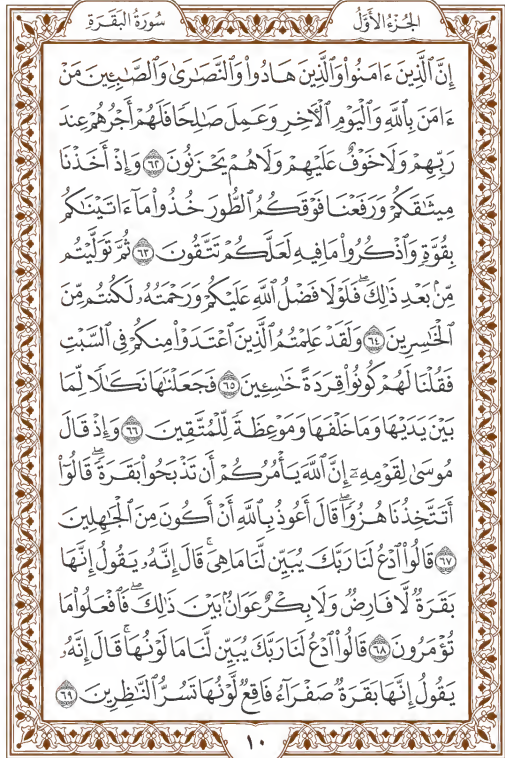 الجُزْءُ الأَوَّلُ
سُورَةُ البَقَرَةِ
إِنَّ ٱلَّذِينَ ءَامَنُواْ وَٱلَّذِينَ هَادُواْ وَٱلنَّصَٰرَىٰ وَٱلصَّٰبِـِٔينَ مَنْ
ءَامَنَ بِٱللَّهِ وَٱلْيَوْمِ ٱلْأَخِرِ وَعَمِلَ صَٰلِحًا فَلَهُمْ أَجْرُهُمْ عِندَ
رَبِّهِمْ وَلَا خَوْفٌ عَلَيْهِمْ وَلَا هُمْ يَحْزَنُونَ ٦٢ وَإِذْ أَخَذْنَا
مِيثَٰقَكُمْ وَرَفَعْنَا فَوْقَكُمُ ٱلطُّورَ خُذُواْ مَآ ءَاتَيْنَٰكُم
بِقُوَّةٍ وَٱذْكُرُواْ مَا فِيهِ لَعَلَّكُمْ تَتَّقُونَ ٦٣ ثُمَّ تَوَلَّيْتُم
مِّنۢ بَعْدِ ذَٰلِكَۖ فَلَوْلَا فَضْلُ ٱللَّهِ عَلَيْكُمْ وَرَحْمَتُهُۥ لَكُنتُم مِّنَ
ٱلْخَٰسِرِينَ ٦٤ وَلَقَدْ عَلِمْتُمُ ٱلَّذِينَ ٱعْتَدَوْاْ مِنكُمْ فِي ٱلسَّبْتِ
فَقُلْنَا لَهُمْ كُونُواْ قِرَدَةً خَٰسِـِٔينَ ٦٥ فَجَعَلْنَٰهَا نَكَٰلًا لِّمَا
بَيْنَ يَدَيْهَا وَمَا خَلْفَهَا وَمَوْعِظَةً لِّلْمُتَّقِينَ ٦٦ وَإِذْ قَالَ
مُوسَىٰ لِقَوْمِهِۦٓ إِنَّ ٱللَّهَ يَأْمُرُكُمْ أَن تَذْبَحُواْ بَقَرَةًۖ قَالُوٓاْ
أَتَتَّخِذُنَا هُزُوًاۖ قَالَ أَعُوذُ بِٱللَّهِ أَنْ أَكُونَ مِنَ ٱلْجَٰهِلِينَ
٦٧ قَالُواْ ٱدْعُ لَنَا رَبَّكَ يُبَيِّن لَّنَا مَا هِيَۚ قَالَ إِنَّهُۥ يَقُولُ إِنَّهَا
بَقَرَةٌ لَّا فَارِضٌ وَلَا بِكْرٌ عَوَانٌۢ بَيْنَ ذَٰلِكَۖ فَٱفْعَلُواْ مَا
تُؤْمَرُونَ ٦٨ قَالُواْ ٱدْعُ لَنَا رَبَّكَ يُبَيِّن لَّنَا مَا لَوْنُهَاۚ قَالَ إِنَّهُۥ
يَقُولُ إِنَّهَا بَقَرَةٌ صَفْرَآءُ فَاقِعٌ لَّوْنُهَا تَسُرُّ ٱلنَّٰظِرِينَ ٦٩
١٠